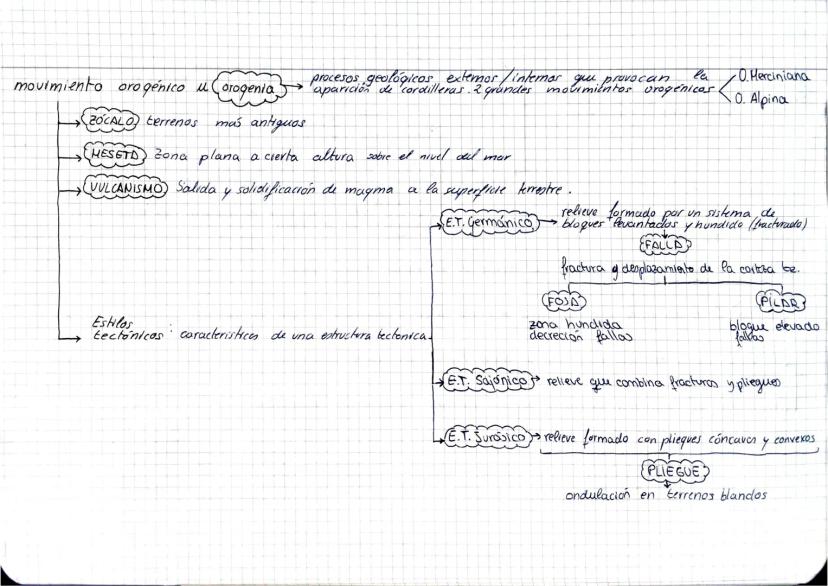 movimiento orogénico u orogenia → procesos geológicos externos/internos que provocan la
aparición de cordilleras. 2 grandes movimientos orogénicos
O. Herciniana
O. Alpina
ZÓCALO terrenos más antiguos
MESETA zona plana a cierta altura sobre el nivel del mar
VULCANISMO Salida y solidificación de magma a la superficie terrestre.
E.T. Germánico → relieve formado por un sistema de
bloques levantados y hundido (fracturado)
FALLA
fractura y desplazamiento de la corteza te.
FOSA
PILAR
zona hundida
decreción fallas
bloque elevado
fallas
Estilos
tectónicos: características de una estructura tectonica
E.T. Sajónico → relieve que combina fracturas y pliegues
E.T. Jurásico → relieve formado con pliegues cóncavos y convexos
PLIEGUE
ondulación en terrenos blandos